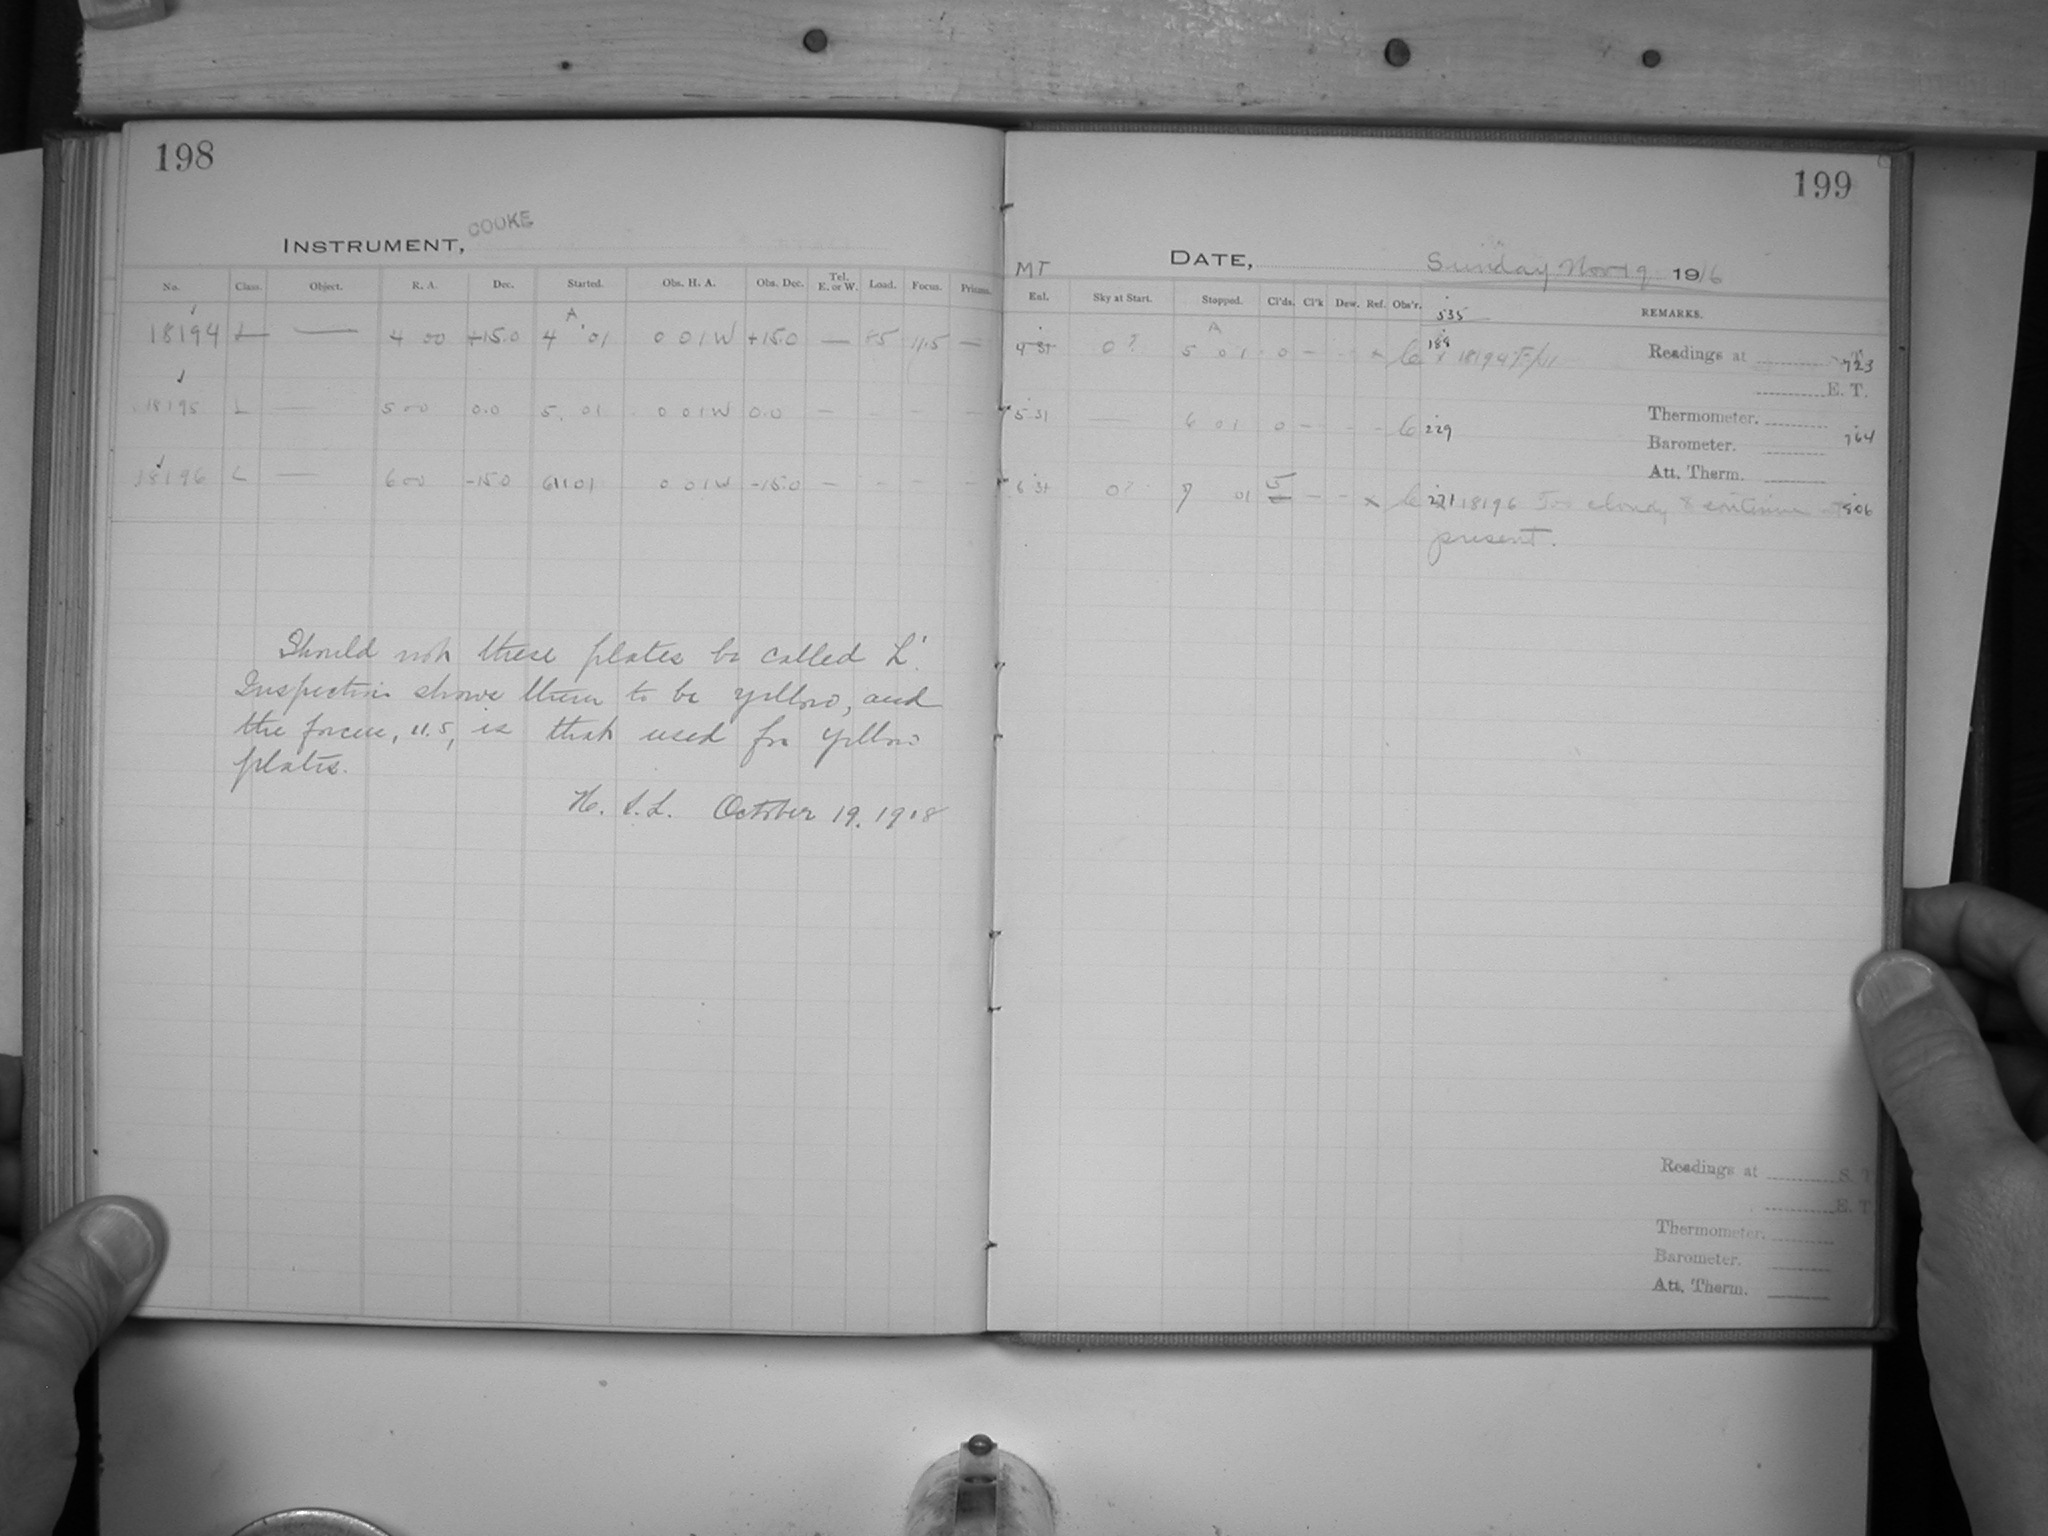 198
INSTRUMENT, COOKE
No. Class. Object. R. A. Dec. Started. Obs. H. A. Obs. Dec. Tel. E. or W. Load. Focus. Prisms.
18194 L — 4 00 +15.0 A 4 01 0 01 W +15.0 — 11.5 —
18195 L — 5 00 0.0 5 01 0 01 W 0.0 — - - -
18196 L — 6 00 -15.0 6 01 0 01 W -15.0 — - - -
Should not these plates be called L'.
Inspection shows them to be yellow, and
the focus, 11.5, is that used for yellow
plates.
October 19, 1918
199
MT DATE, Sunday Nov 19 1916
Exl. Sky at Start. Stopped. Cl'ds. Cl'k Dew. Ref. Obs'r. 535 REMARKS.
4 31 0? A 5 01 0 - - x 188 x 18194 Readings at 723
E. T.
5 31 — 6 01 0 - - - 229 Thermometer. 764
Barometer.
Att. Therm.
6 31 0? 7 01 5 - - x 271 18196 Too cloudy to continue at 806
present.
Readings at S. T.
E. T.
Thermometer.
Barometer.
Att. Therm.